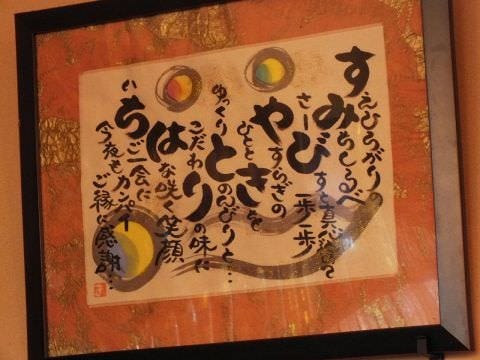 すえひろがりの
みちしるべ
さーびすと真心込めて
一歩一歩
やすらぎの
ひとときを
ゆっくりとのんびりと…
こだわりの味に
はな咲く笑顔
いちご一会に
今夜もカンパイ
ご縁に感謝…